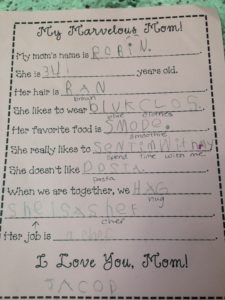 My Marvelous Mom!
My mom's name is ROBIN.
She is 34! years old.
Her hair is BRAN
brown
She likes to wear BLUKCLOS.
blue clothes
Her favorite food is SMODE.
Smoothie
She really likes to
spend time with me
She doesn't like PASTA.
Pasta
When we are together, we HAG
hug
she is a shef
chef
Her job is a chef
I Love You, Mom!
JACOB